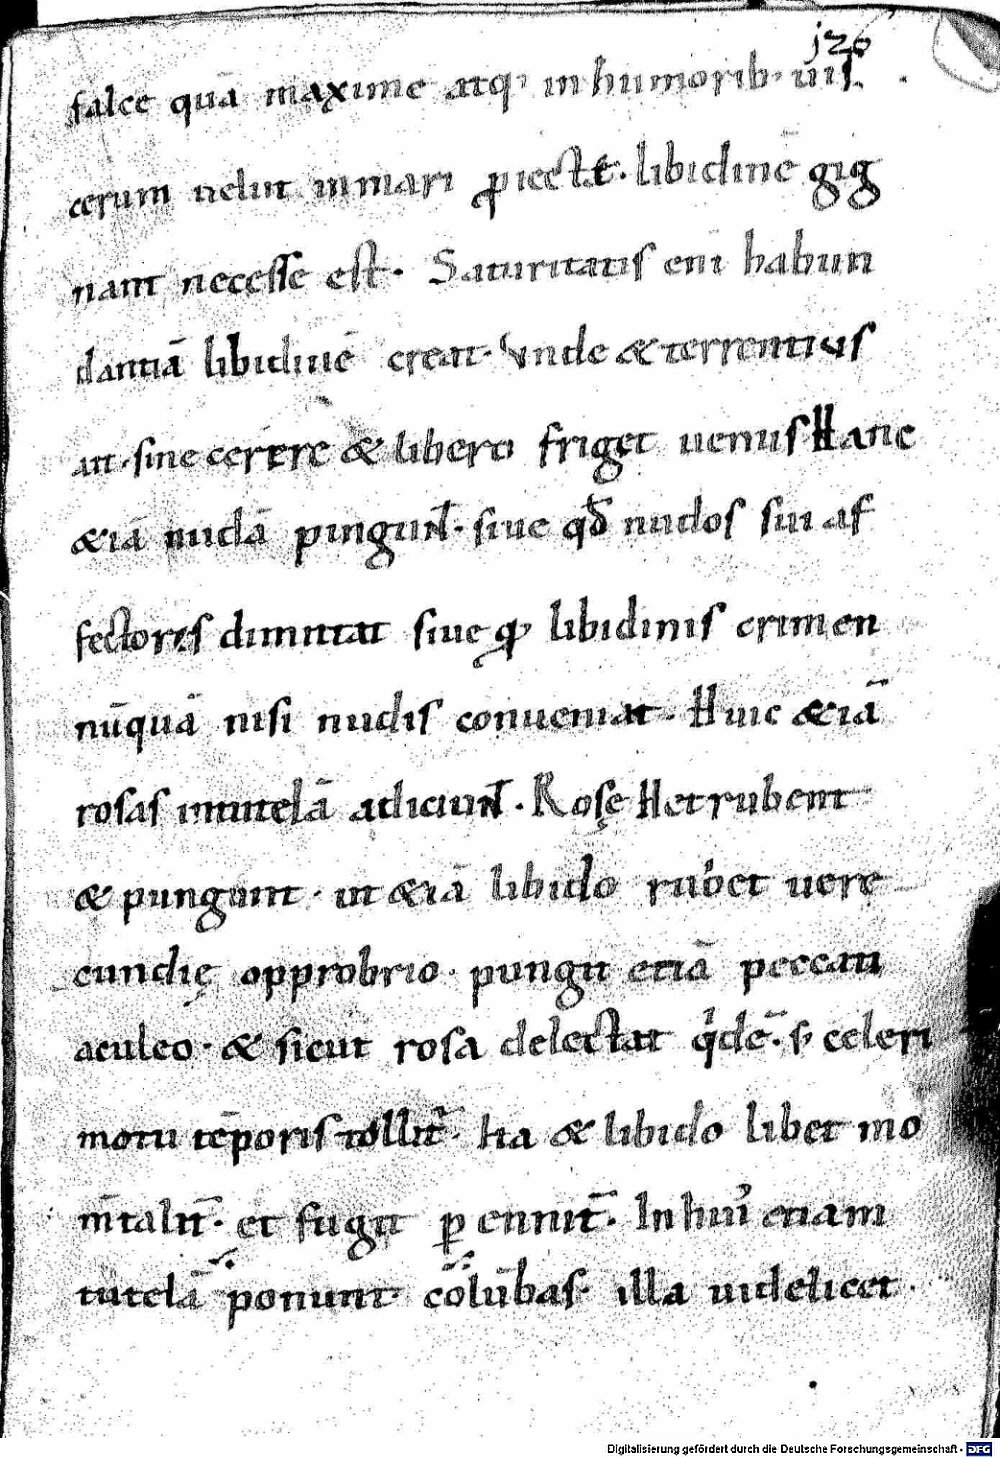 126
falce quā maxime atq; in humorib; uis
cerum uelut in mari ꝓiectę. libidinē gig
nant necesse est. Saturitatis eni habun
dantiā libidinē creat. Vnde & terrentius
ait. sine cerere & libero friget uenus Hanc
&iā nudā pingunt̄. siue qđ nudos sui af
fectores dimittat siue qͥ libidinis crimen
nūquā nisi nudis conueniat. Huic &iā
rosas in tutelā adiciunt̄. Rosę Het rubent
& pungunt. ut &iā libido rubet uere
cundię opprobrio. pungit etiā peccati
aculeo. & sicut rosa delectat qͥdē. s; celeri
motu tēporis tollit̄. Ita & libido libet mo
m̄talit̄. et fugit ꝑennit̄. In huiꝰ etiam
tutelā ponunt cōlūbas. illa uidelicet.
Digitalisierung gefördert durch die Deutsche Forschungsgemeinschaft - DFG